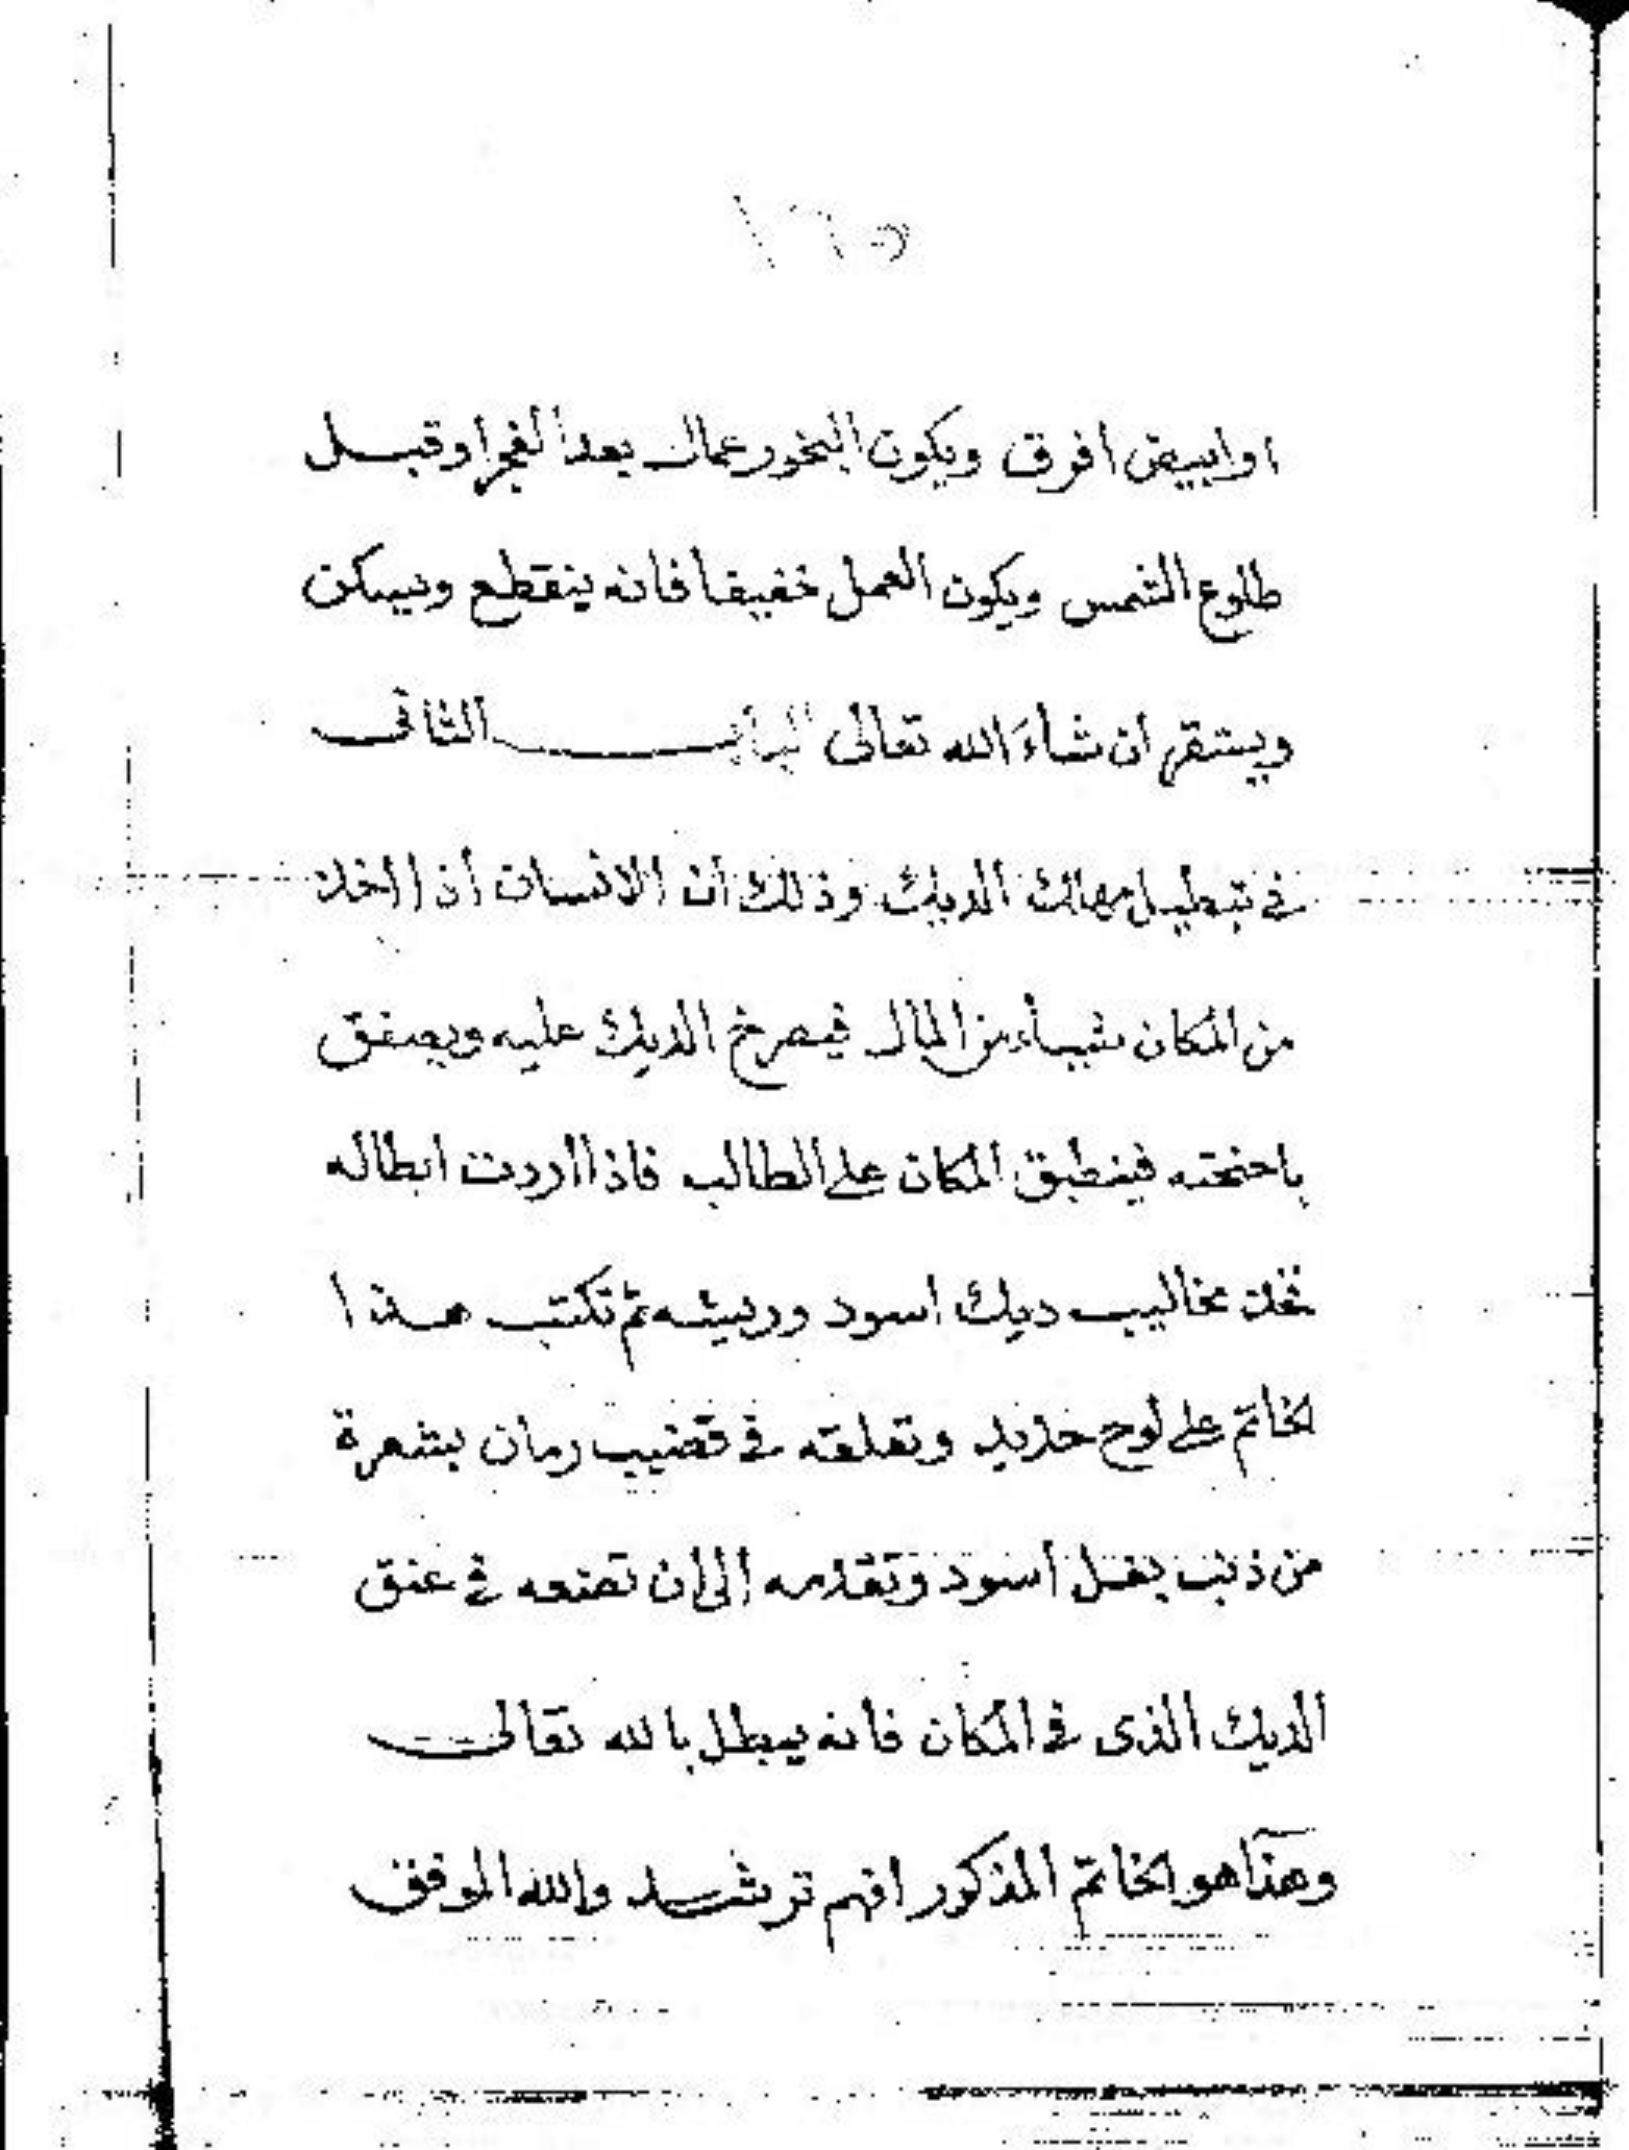 ١٦٥
او ابيض افرق ويكون البخور عمال بعد الفجر او قبل
طلوع الشمس ويكون العمل خفيفا فانه ينقطع ويسكن
ويستقر ان شاء الله تعالى الباب الثانى
فى تبطيل مهالك الديك وذلك ان الانسان اذا اخذ
من المكان شيأ من المال فيصرخ الديك عليه ويصفق
باجنحته فينطبق المكان على الطالب فاذا اردت ابطاله
فخذ مخاليب ديك اسود وريشه ثم تكتب هذا
الخاتم على لوح حديد وتعلقه فى قضيب رمان بشعرة
من ذنب بغل اسود وتقدمه الى ان تضعه فى عنق
الديك الذى فى المكان فانه يبطل بالله تعالى
وهذا هو الخاتم المذكور افهم ترشد والله الموفق